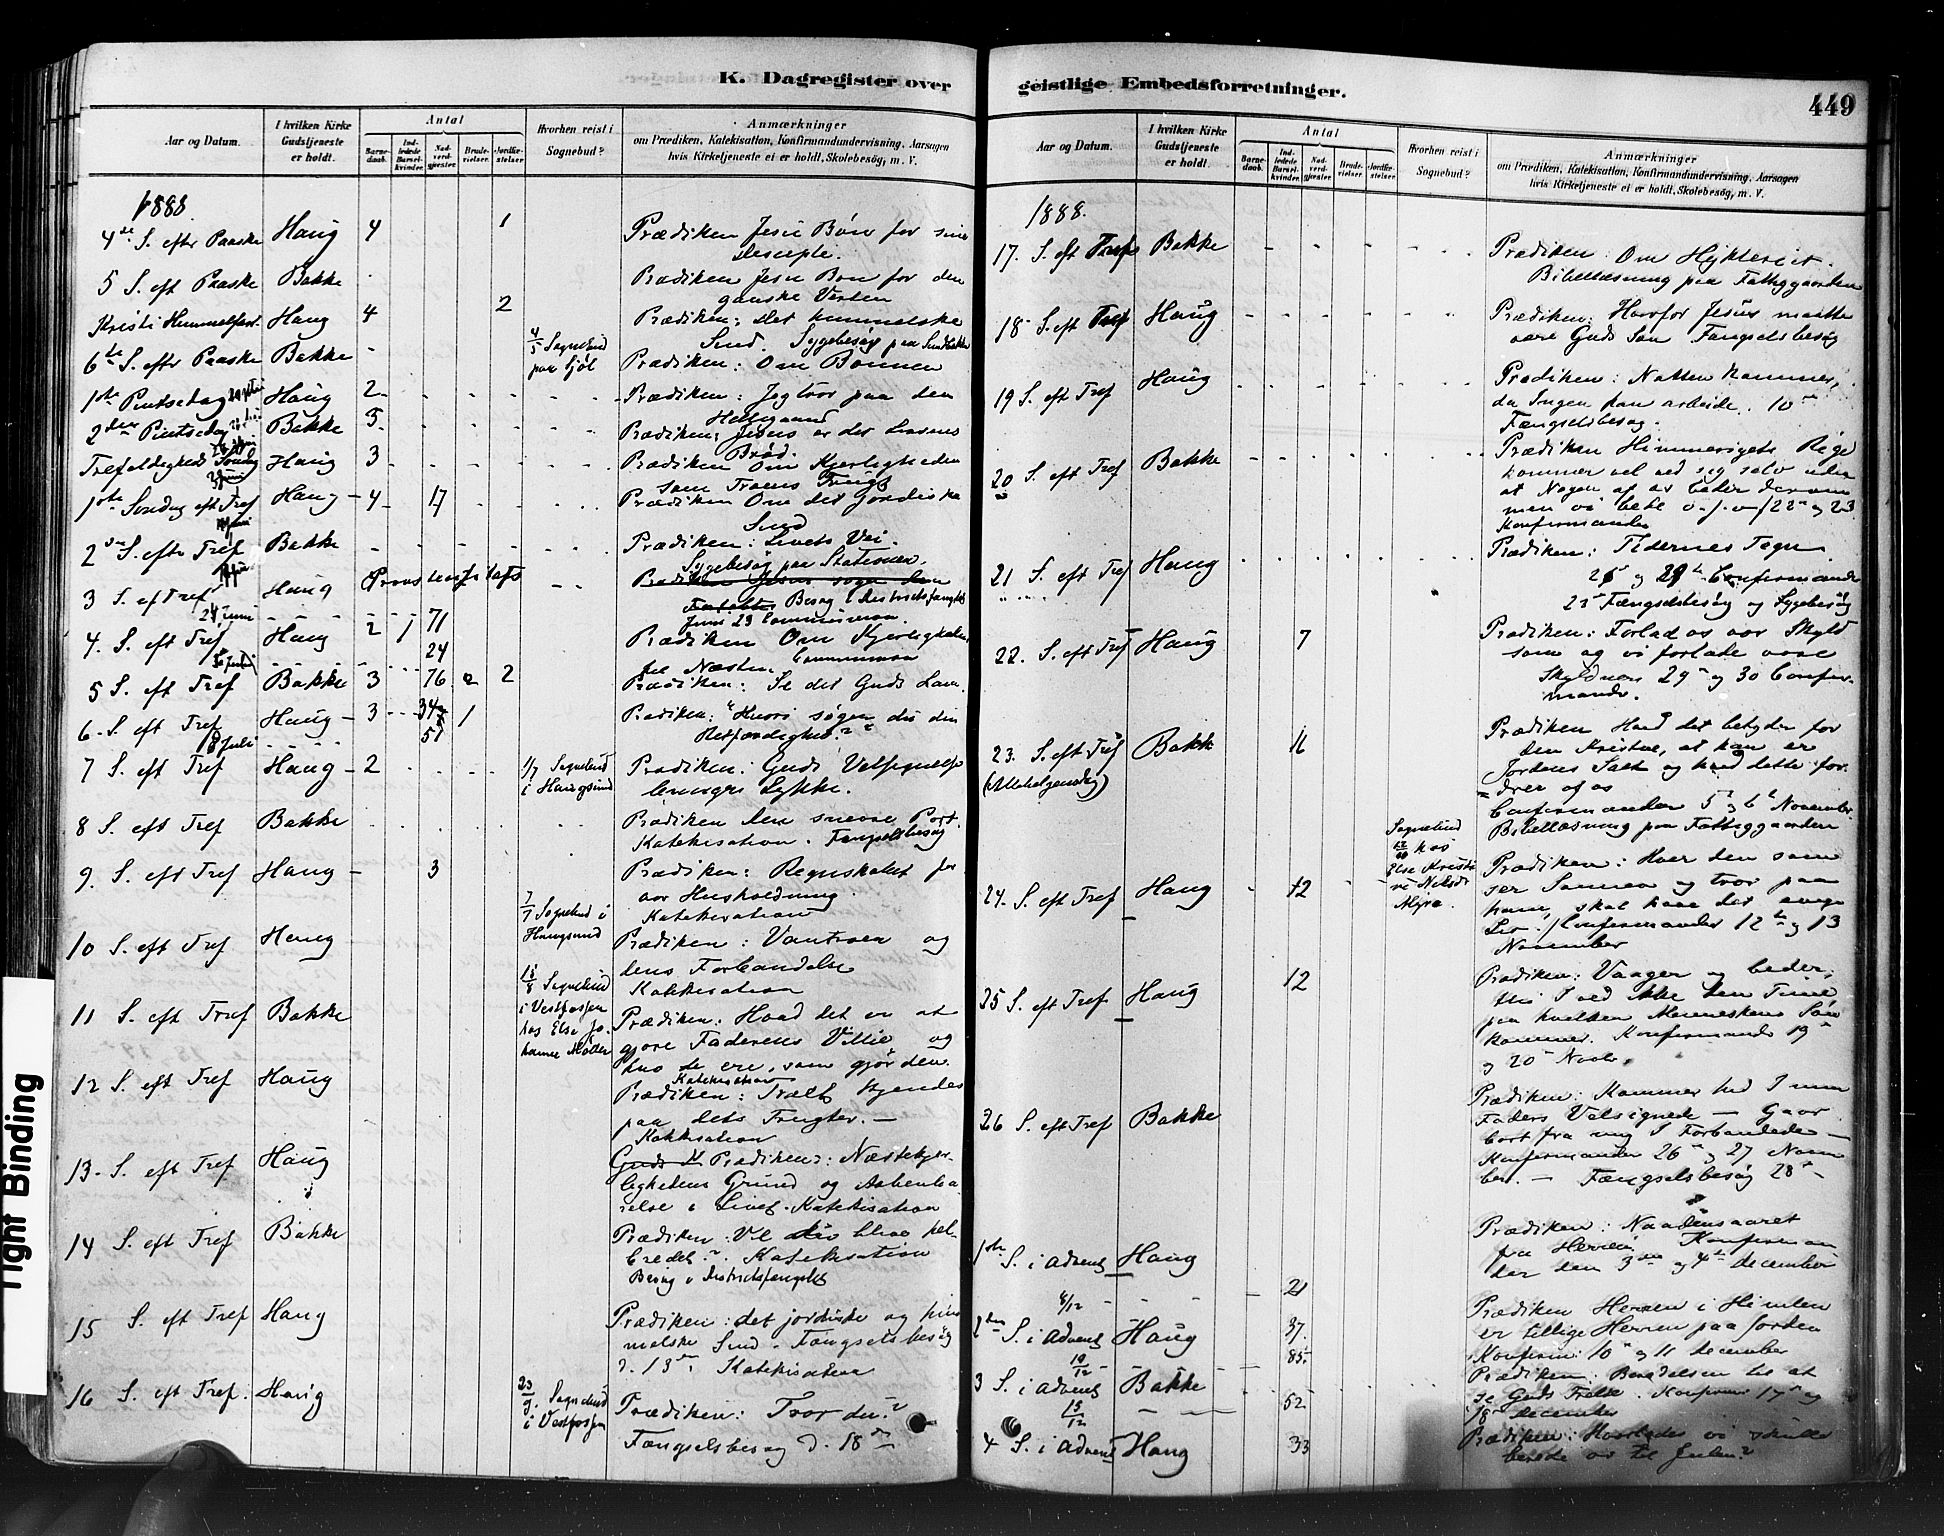 K. Dagregister over
Aar og Datum.
I hvilken Kirke Gudstjeneste er holdt.
Antal
Barnedaab.
Indledede Barselkvinder.
Nadverdgjester
Brudevielser.
Jordfæstelser
Hvorhen reist i Sognebud?
Anmærkninger
om Prædiken, Katekisation, Konfirmandundervisning, Aarsagen
hvis Kirketjeneste ei er holdt, Skolebesøg, m. V.
1888
4de S. efter Paaske Haug 4 1 Prædiken Jesu Bøn for sine
Disciple.
5 S. eft Paaske Bakke Prædiken Jesu Bøn for den
ganske Verden
Kristi Himmelfart Haug 4 2 Prædiken: Det himmelske
Sind. Sygebesøg paa
6te S. efter Paaske Bakke 4/5 Sognebud Prædiken: Om Bønnen
paa
1ste Pintsedag Haug 2 Prædiken: Jeg tror paa den
Helligaand
2den Pintsedag Bakke 5 Prædiken: Jesus er det Levende
Brød.
Trefoldigheds Søndag Haug 3 Prædiken Om Kjerligheden
som Troens Frugt
1ste Søndag eft Tref Haug 4 17 Prædiken Om det jordiske
Sind
2den S. efter Tref Bakke Prædiken: Livets Vei.
Sygebesøg paa Stationen.
3 S. eft Tref Haug
Besøg i Distriktsfængslet
24 Juni 71 Juni 23 Communion.
4. S. eft Tref Haug 2 1 24 Prædiken Om Kjerligheden
til Næsten. Communion
5 S. eft Tref Bakke 3 76 2 2 Prædiken: Se det Guds Lam
6 S. eft Tref Haug 3 34 1 Prædiken: "Hvori søger du din
8 Juli 51 Retfærdighed?"
7 S. eft Tref Haug 2 1/7 Sognebud Prædiken: Guds Velsignelse
i Haugsund Lykke.
8 S. eft Tref Bakke Prædiken den snevre Port.
Katekisation. Fængselsbesøg
9. S. eft Tref Haug 3 Prædiken: Regnskabet for
vor Husholdning.
7/7 Sognebud i Katekisation
10 S. eft Tref Haug Haugsund Prædiken: Vantroen og
dens Forbandelse
Sognebud Katekisation
11 S. eft Tref Bakke i Vestfossen Prædiken: Hvad det er at
hos Else Jo- gjøre Faderens Villie og
hanne Møller hvo de ere, som gjør den.
Katekisation
12 S. eft Tref Haug Prædiken: Træet kjendes
paa dets Frugter. —
Katekisation
13. S. eft Tref Haug Prædiken: Næstekjer-
lighedens Grund og Aabenba-
relse i Livet. Katekisation
14 S. eft Tref Bakke Prædiken: Vil du blive hel-
bredet? Katekisation
Besøg i Distriktsfængslet
15 S. eft Tref Haug Prædiken: det jordiske og him-
melske Sind. Fængselsbesøg
d. 13de Katekisation
16 S. eft Tref. Haug 23/9. Sognebud Prædiken: Tror du?
i Vestfossen Fængselsbesøg d. 18de
geistlige Embedsforretninger.
449
Aar og Datum.
I hvilken Kirke Gudstjeneste er holdt.
Antal
Barnedaab.
Indledede Barselkvinder.
Nadverdgjester
Brudevielser.
Jordfæstelser
Hvorhen reist i Sognebud?
Anmærkninger
om Prædiken, Katekisation, Konfirmandundervisning, Aarsagen
hvis Kirketjeneste ei er holdt, Skolebesøg, m. V.
1888.
17. S. eft Tref Bakke Prædiken: Om Hykleriet.
Bibellæsning paa Fattiggaarden
18 S. eft Tref Haug Prædiken: Hvorfor Jesus maatte
være Guds Søn Fængselsbesøg
19 S. eft Tref Haug Prædiken: Natten kommer,
da Ingen kan arbeide. 10de
Fængselsbesøg.
20 S. eft Tref Bakke Prædiken Himmeriges Rige
kommer vel ved seg selv uden
at Nogen af os beder derom
men vi bede o.s.v. 22de og 23
Konfirmander
21 S. eft Tref Haug Prædiken: Tidernes Tegn
Confirmander
23de Fængselsbesøg og Sygebesøg
22. S. eft Tref Haug 7 Prædiken: Forlad os vor Skyld
som og vi forlade vore
Skyldnere 29de og 30 Confir-
mander.
23. S. eft Tref Bakke 16 Prædiken Hvad det betyder for
(Allehelgensdag) den Kristne, at han er
Jordens Salt og hvad dette for-
drer af os
Confirmander 5te og 6te November
Sognebud Bibellæsning paa Fattiggaarden
hos
Else Kristi-
24. S. eft Tref Haug 12 ne Nilsdr. Prædiken: Hver den som
Myra. ser Sønnen og tror paa
ham, skal have det evige
Liv. Konfirmander 12te og 13
November
25 S. eft Tref Haug 12 Prædiken: Vaager og beder,
thi I ved ikke den Time
paa hvilken Menneskens Søn
kommer. Konfirmander 19de
og 20de Novbr.
26 S. eft Tref Bakke Prædiken: Kommer hid I min
Faders Velsignede — Gaar
bort fra mig I Forbandede —
Konfirmander 26de og 27 Novem
ber. — Fængselsbesøg 28de
1ste S. i Advent Haug Prædiken: Naadensaaret
fra Herren. Konfirman
der den 3die og 4de December
8/12 21
2den S. i Advent Haug 37. Prædiken Herren i Himlen
er tillige Herren paa Jorden
85. Konfirm: 10de og 11 December
3 S. i Advent Bakke Prædiken: Beredelsen til at
15/12 52 se Guds Frelse. Konfirm 17de og
18de December
4 S. i Advent Haug 33 Prædiken: Hvorledes vi skulle
berede os til Julen?
Tight Binding